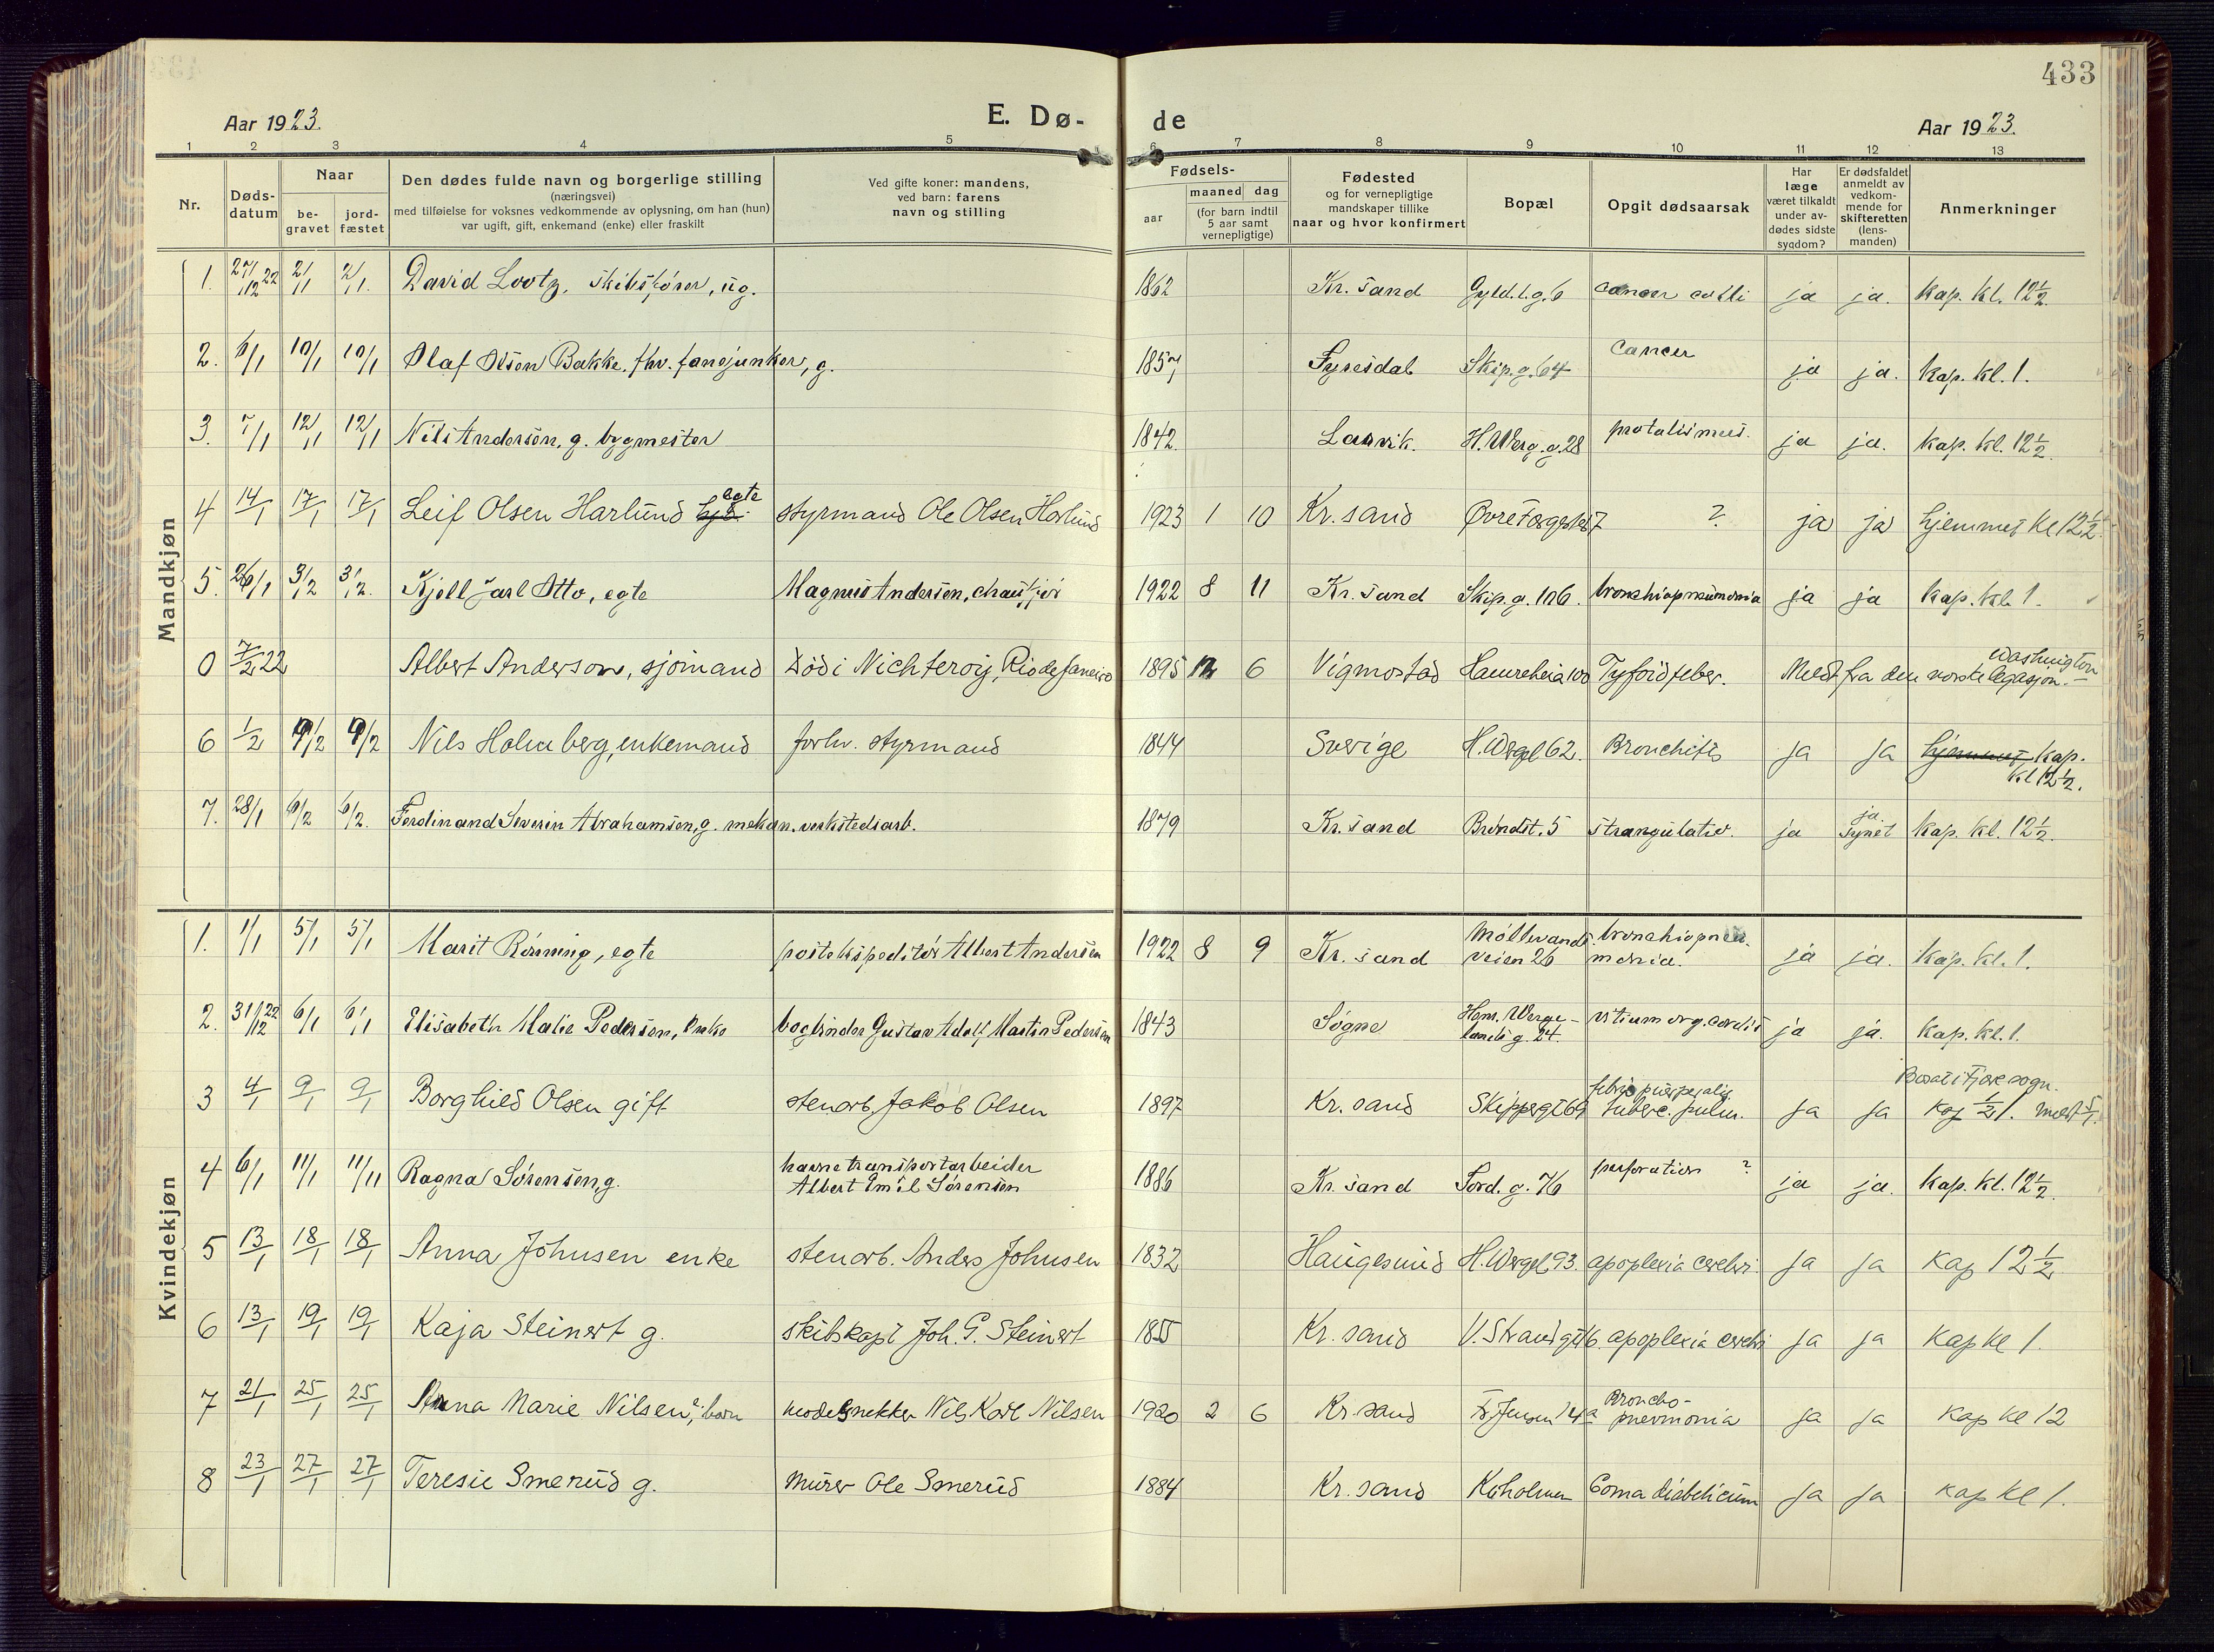 433
Aar 1923.
E. Dø-
de
Aar 1923.
1 2 3 4 5 6 7 8 9 10 11 12 13
Nr.
Døds-
datum
Naar
be-
gravet
jord-
fæstet
Den dødes fulde navn og borgerlige stilling
(næringsvei)
med tilføielse for voksnes vedkommende av oplysning, om han (hun)
var ugift, gift, enkemand (enke) eller fraskilt
Ved gifte koner: mandens,
ved barn: farens
navn og stilling
Fødsels-
aar
maaned dag
(for barn indtil
5 aar samt
vernepligtige)
Fødested
og for vernepligtige
mandskaper tillike
naar og hvor konfirmert
Bopæl
Opgit dødsaarsak
Har
læge
været tilkaldt
under av-
dødes sidste
sygdom?
Er dødsfaldet
anmeldt av
vedkom-
mende for
skifteretten
(lens-
manden)
Anmerkninger
Mandkjøn
1. 27/12 22 2/1 2/1. David Lootz, skibsfører, ug. 1862 Kr. sand Gyld.l.g. 6 cancer ja ja. Kap. kl. 12½.
2. 6/1 10/1 10/1 Olaf Olsen Bakke, fhv. fanejunker, g. 1857 Fyresdal Skip.g. 64 Cancer ja ja. Kap. kl. 1.
3. 7/1 12/1 12/1 Nils Andersen, g. bygmester 1842. Larvik. H. Werg.g. 28 ja ja. Kap. kl. 12½.
4 14/1 17/1 17/1 Leif Olsen Harlund egte styrmand Ole Olsen Harlund 1923 1 10 Kr. sand ? ja ja hjemmet Kl 12½.
5. 26/1 3/2 3/2. Kjell Jarl Otto, egte Magnus Andersen, chauffør 1922 8 11 Kr. sand Skip.g. 106. bronchiopneumonia ja ja Kap. kl. 1.
0 7/2 22 Albert Anderson, sjømand død i Nichteroy, Rio de Janeiro 1895 12 6 Vigmostad Haumeheia 100 Tyfoidfeber. Meldt fra den norske legasjon. Washington
6 1/2 9/2 9/2 Nils Holmberg, enkemand forhv. styrmand 1844 Sverige H. Wergel 62. Bronchitis ja ja hjemmet Kap.
kl 12½.
7. 28/1 6/2 6/2. Ferdinand Severin Abrahamsen, g. mekan. verkstedsarb. 1879 Kr. sand Brøndst. 5 strangulatio. ja ja.
Synet Kap. kl. 12½.
Kvindekjøn
1. 1/1 5/1 5/1 Marit Rønning, egte postekspeditør Albert Andersen 1922 8 9 Kr. sand Møllevands
veien 26 bronchiopneu-
monia. ja ja. Kap. kl. 1.
2. 31/12 22 6/1 6/1 Elisabeth Malie Pedersen, enke bogbinder Gustav Adolf Martin Pedersen 1843 Søgne Henr. Werge-
lands g. 24. vitium org. cordis ja ja. Kap. kl. 1.
3 4/1 9/1 9/1 Borghild Olsen gift stenarb. Jakob Olsen 1897 Kr. sand Skippergt 69 febris puerperalis.
tuberc. pulm. ja ja Bosat i Fjære sogn.
Kap ½ 1. meldt 5/1.
4 6/1 11/1 11/11 Ragna Sørensen, g. havnetransportarbeider
Albert Emil Sørensen 1886 Kr. sand Tord. g. 76 perforation ? ja ja. Kap. kl. 12½.
5 13/1 18/1 18/1 Anna Johnsen enke stenarb. Anders Johnsen 1832 Haugesund H. Wergel 93. apoplexia cerebri. ja ja Kap 12½
6 13/1 19/1 19/1 Kaja Steinert g. skibskapt Joh. G. Steinert 1855 Kr. sand V. Strandgt 16. apoplexia cerebri ja ja Kap kl 1.
7 21/1 25/1 25/1 Anna Marie Nilsen, barn modelsnekker Nils Karl Nilsen 1920 2 6 Kr. sand Fr. Jensen 14a Broncho-
pnevmonia ja ja Kap kl 12
8 23/1 27/1 27/1 Teresie Smerud g. murer Ole Smerud 1884 Kr. sand Kuholmen Coma diabeticum ja ja Kap kl 1.